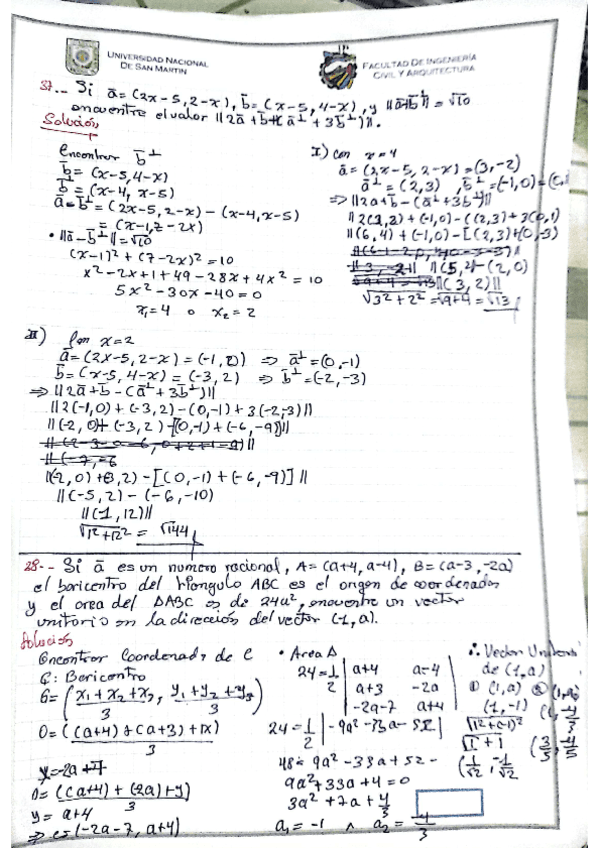 UNIVERSIDAD NACIONAL
DE SAN MARTIN
FACULTAD DE INGENIERÍA
CIVIL Y ARQUITECTURA
37.- Si ā = (2x-5, 2-x), b̄ = (x-5, 4-x), y ||ā-b̄⊥|| = √10
encuentre el valor ||2ā + b̄ - (ā⊥ + 3b̄⊥)||.
Solución
Encontrar b̄⊥
b̄ = (x-5, 4-x)
b̄⊥ = (x-4, x-5)
ā - b̄⊥ = (2x-5, 2-x) - (x-4, x-5)
= (x-1, 7-2x)
• ||ā - b̄⊥|| = √10
(x-1)² + (7-2x)² = 10
x² - 2x + 1 + 49 - 28x + 4x² = 10
5x² - 30x - 40 = 0
x₁ = 4 o x₂ = 2
I) con x = 4
ā = (2x-5, 2-x) = (3, -2)
ā⊥ = (2,3), b̄⊥ = (-1,0) =
⇒ ||2a + b - (a⊥ + 3b⊥)||
||(6,4) + (-1,0) - [(2,3) + (0,-3)
||(5,4) - (2,0)
||(3,2)||
√3² + 2² = √9+4 = √13
II) Con x = 2
ā = (2x-5, 2-x) = (-1, 0) ⇒ ā⊥ = (0, -1)
b̄ = (x-5, 4-x) = (-3, 2) ⇒ b̄⊥ = (-2, -3)
⇒ ||2ā + b̄ - (ā⊥ + 3b̄⊥)||
||2(-1,0) + (-3,2) - (0,-1) + 3(-2,-3)||
||(-2,0) + (-3,2) - [(0,-1) + (-6,-9)]||
||(-2,0) + (-3,2) - [(0,-1) + (-6,-9)]||
||(-5,2) - (-6,-10)
||(-1,12)||
√12+12² = √144
28.- Si ā es un numero racional, A = (a+4, a-4), B = (a-3, -2a)
el baricentro del triangulo ABC es el origen de coordenadas
y el area del ΔABC es de 24a², encuentre un vector
unitorio en la dirección del vector (-1, a).
Solución
Encontrar Coordenada de C
G: Baricentro
G = (x₁ + x₂ + x₃, y₁ + y₂ + y₃)
3 3
0 = ((a+4) + (a+3) + x)
3
y = -2a + 7
0 = ((a+4) + (2a) + y)
3
y = a+4
⇒ c = (-2a-7, a+4)
• Area Δ
24 = 1/2 | a+4 a-4
a+3 -2a
-2a-7 a+4 |
24 = 1/2 | -9a² - 33a - 52 |
48 = 9a² - 33a + 52 -
9a² + 33a + 4 = 0
3a² + 7a + 4/3
a₁ = -1 ∧ a₂ = -4/3
∴ Vector Unitario
de (1, a)
① (1, a) ② (1, a)
(1, -1) (1, -4/3)
√1² + (-1)²
√1+1 (3/5, -4/5)
(1/√2, -1/√2)